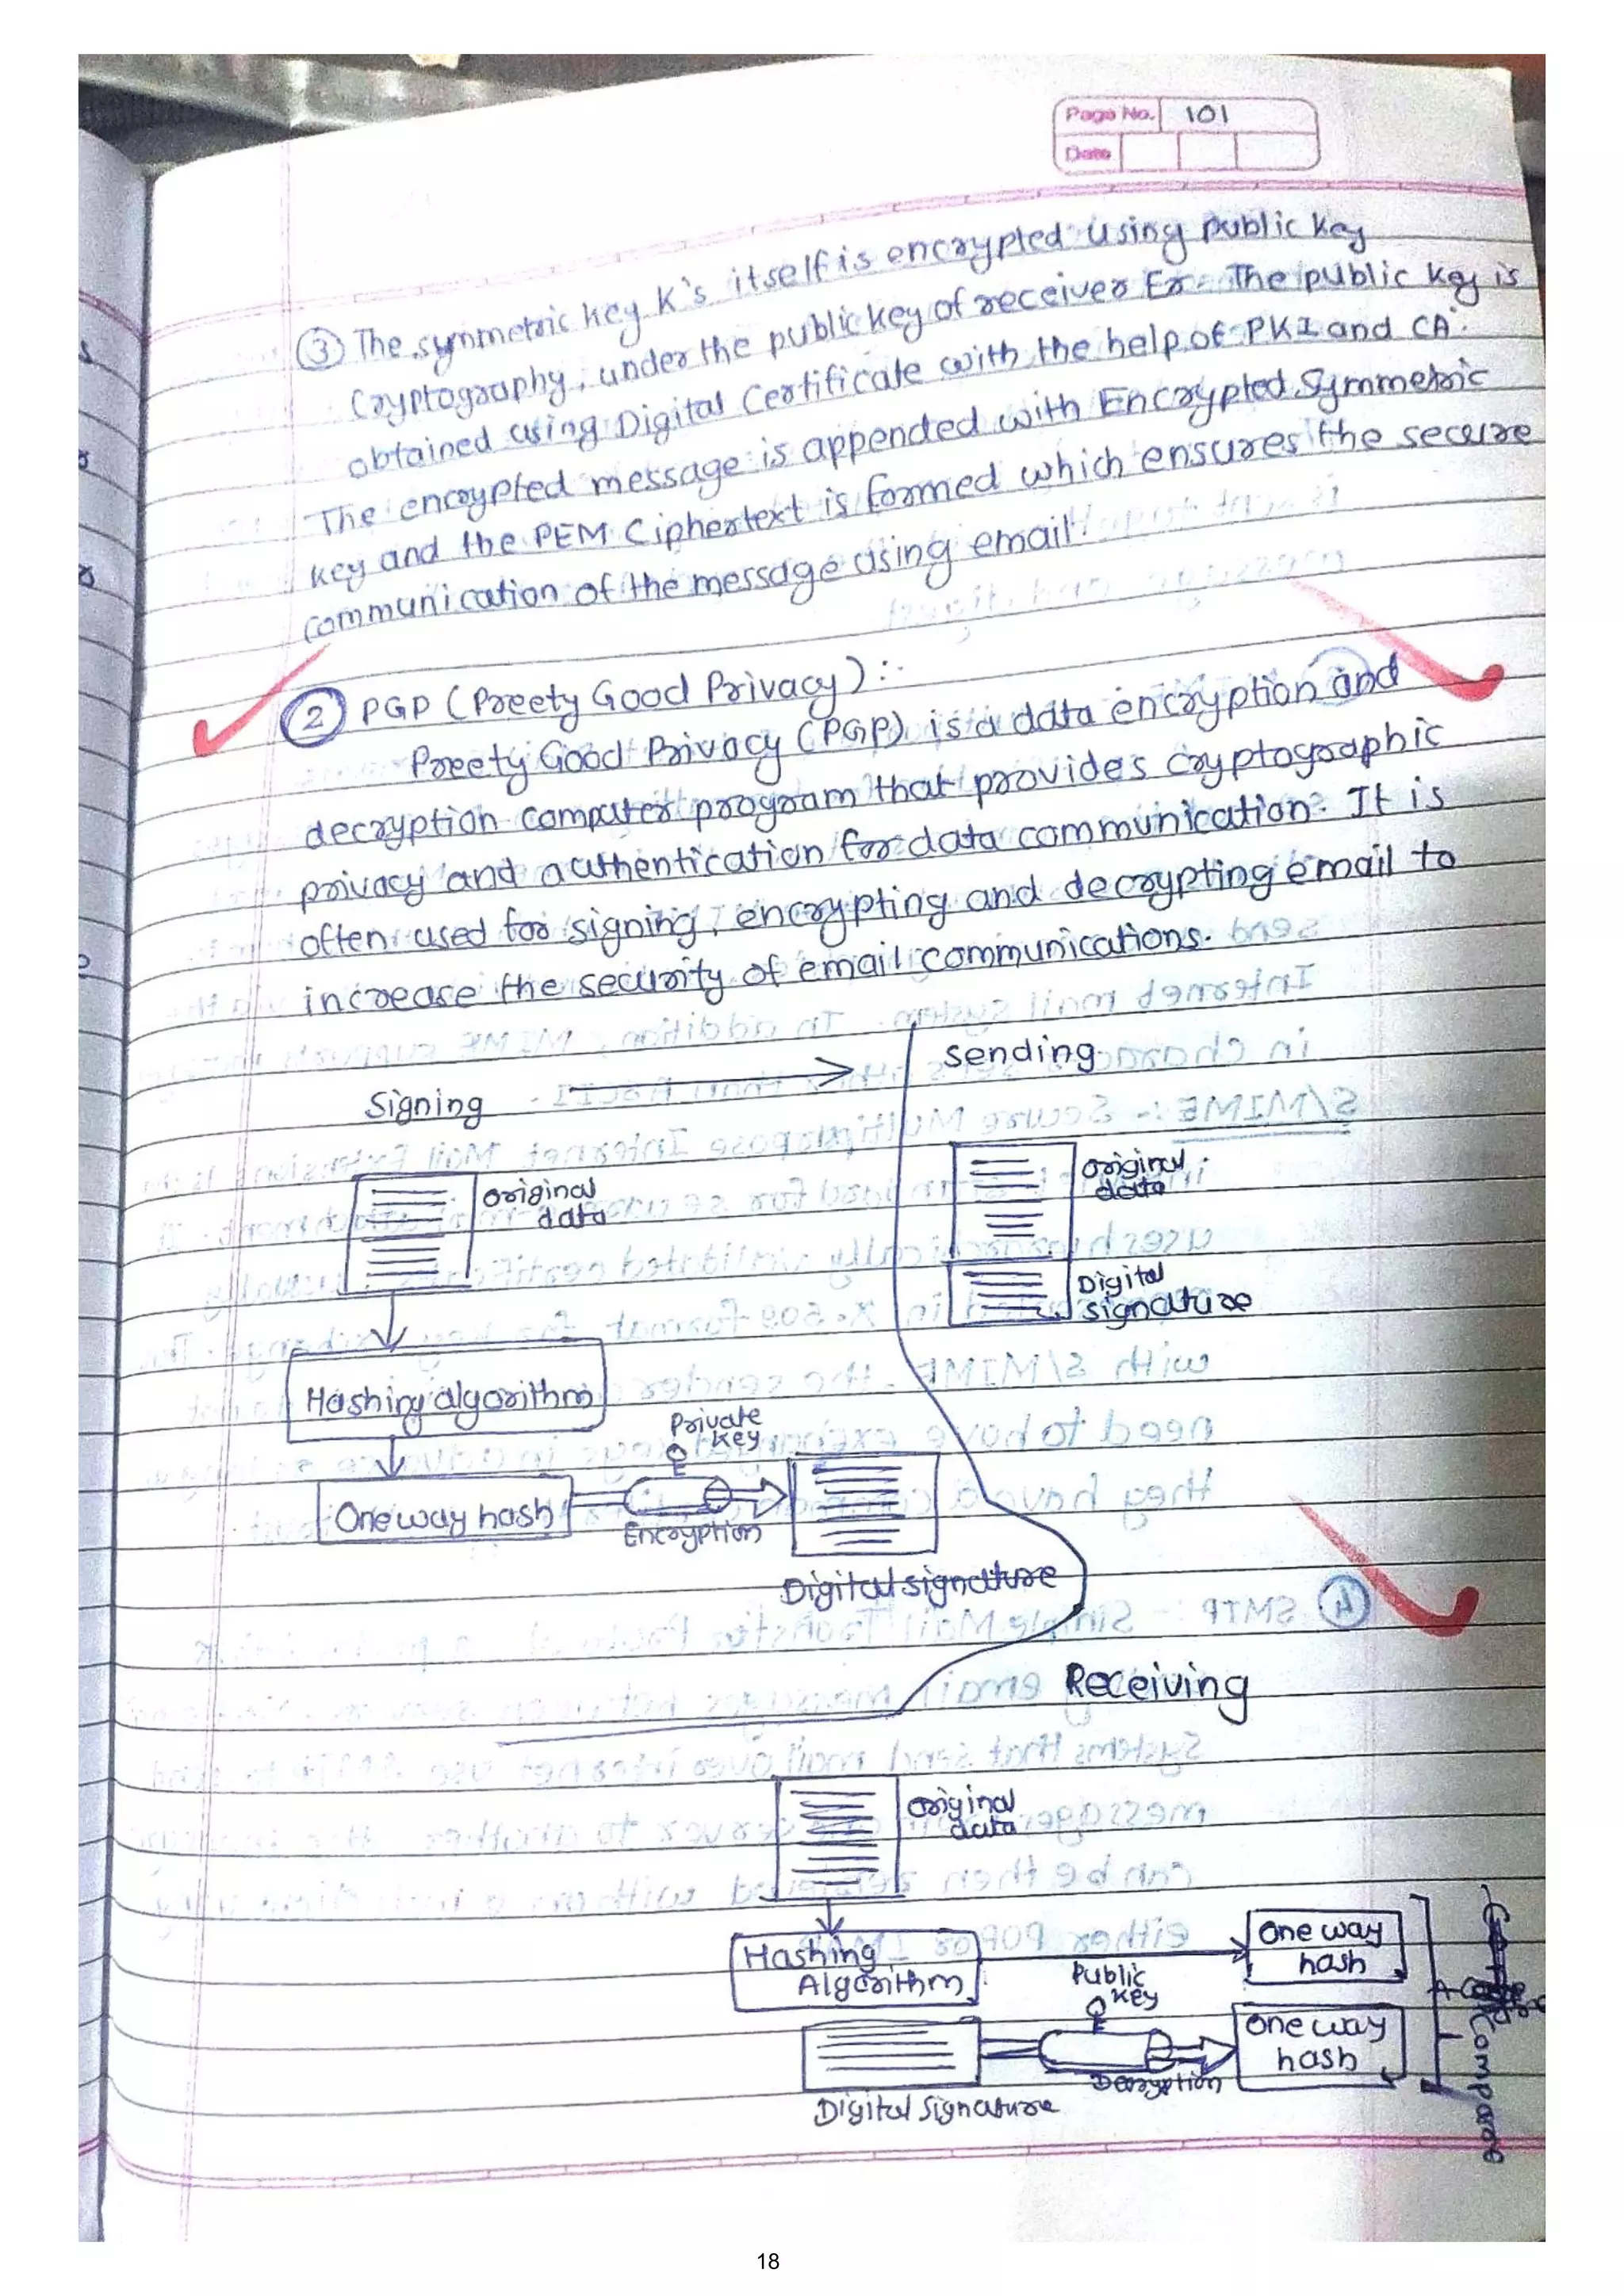 Page No. 101
Date
③ The symmetric key K's itself is encrypted using public key
Cryptography, under the public key of receiver Er. The public key is
obtained using Digital Certificate with the help of PKI and CA.
The encrypted message is appended with Encrypted Symmetric
key and the PEM Ciphertext is formed which ensures the secure
communication of the message using email.
② PGP (Preety Good Privacy) :-
Preety Good Privacy (PGP) is a data encryption and
decryption computer program that provides cryptographic
privacy and authentication for data communication. It is
often used for signing, encrypting and decrypting email to
increase the security of email communications.
Signing
Sending
original
data
original
data
Digital
signature
Hashing algorithm
Private
key
One way hash
Encryption
Digital signature
Receiving
original
data
Hashing
Algorithm
Public
key
One way
hash
One way
hash
Decryption
Digital Signature
Compare
18